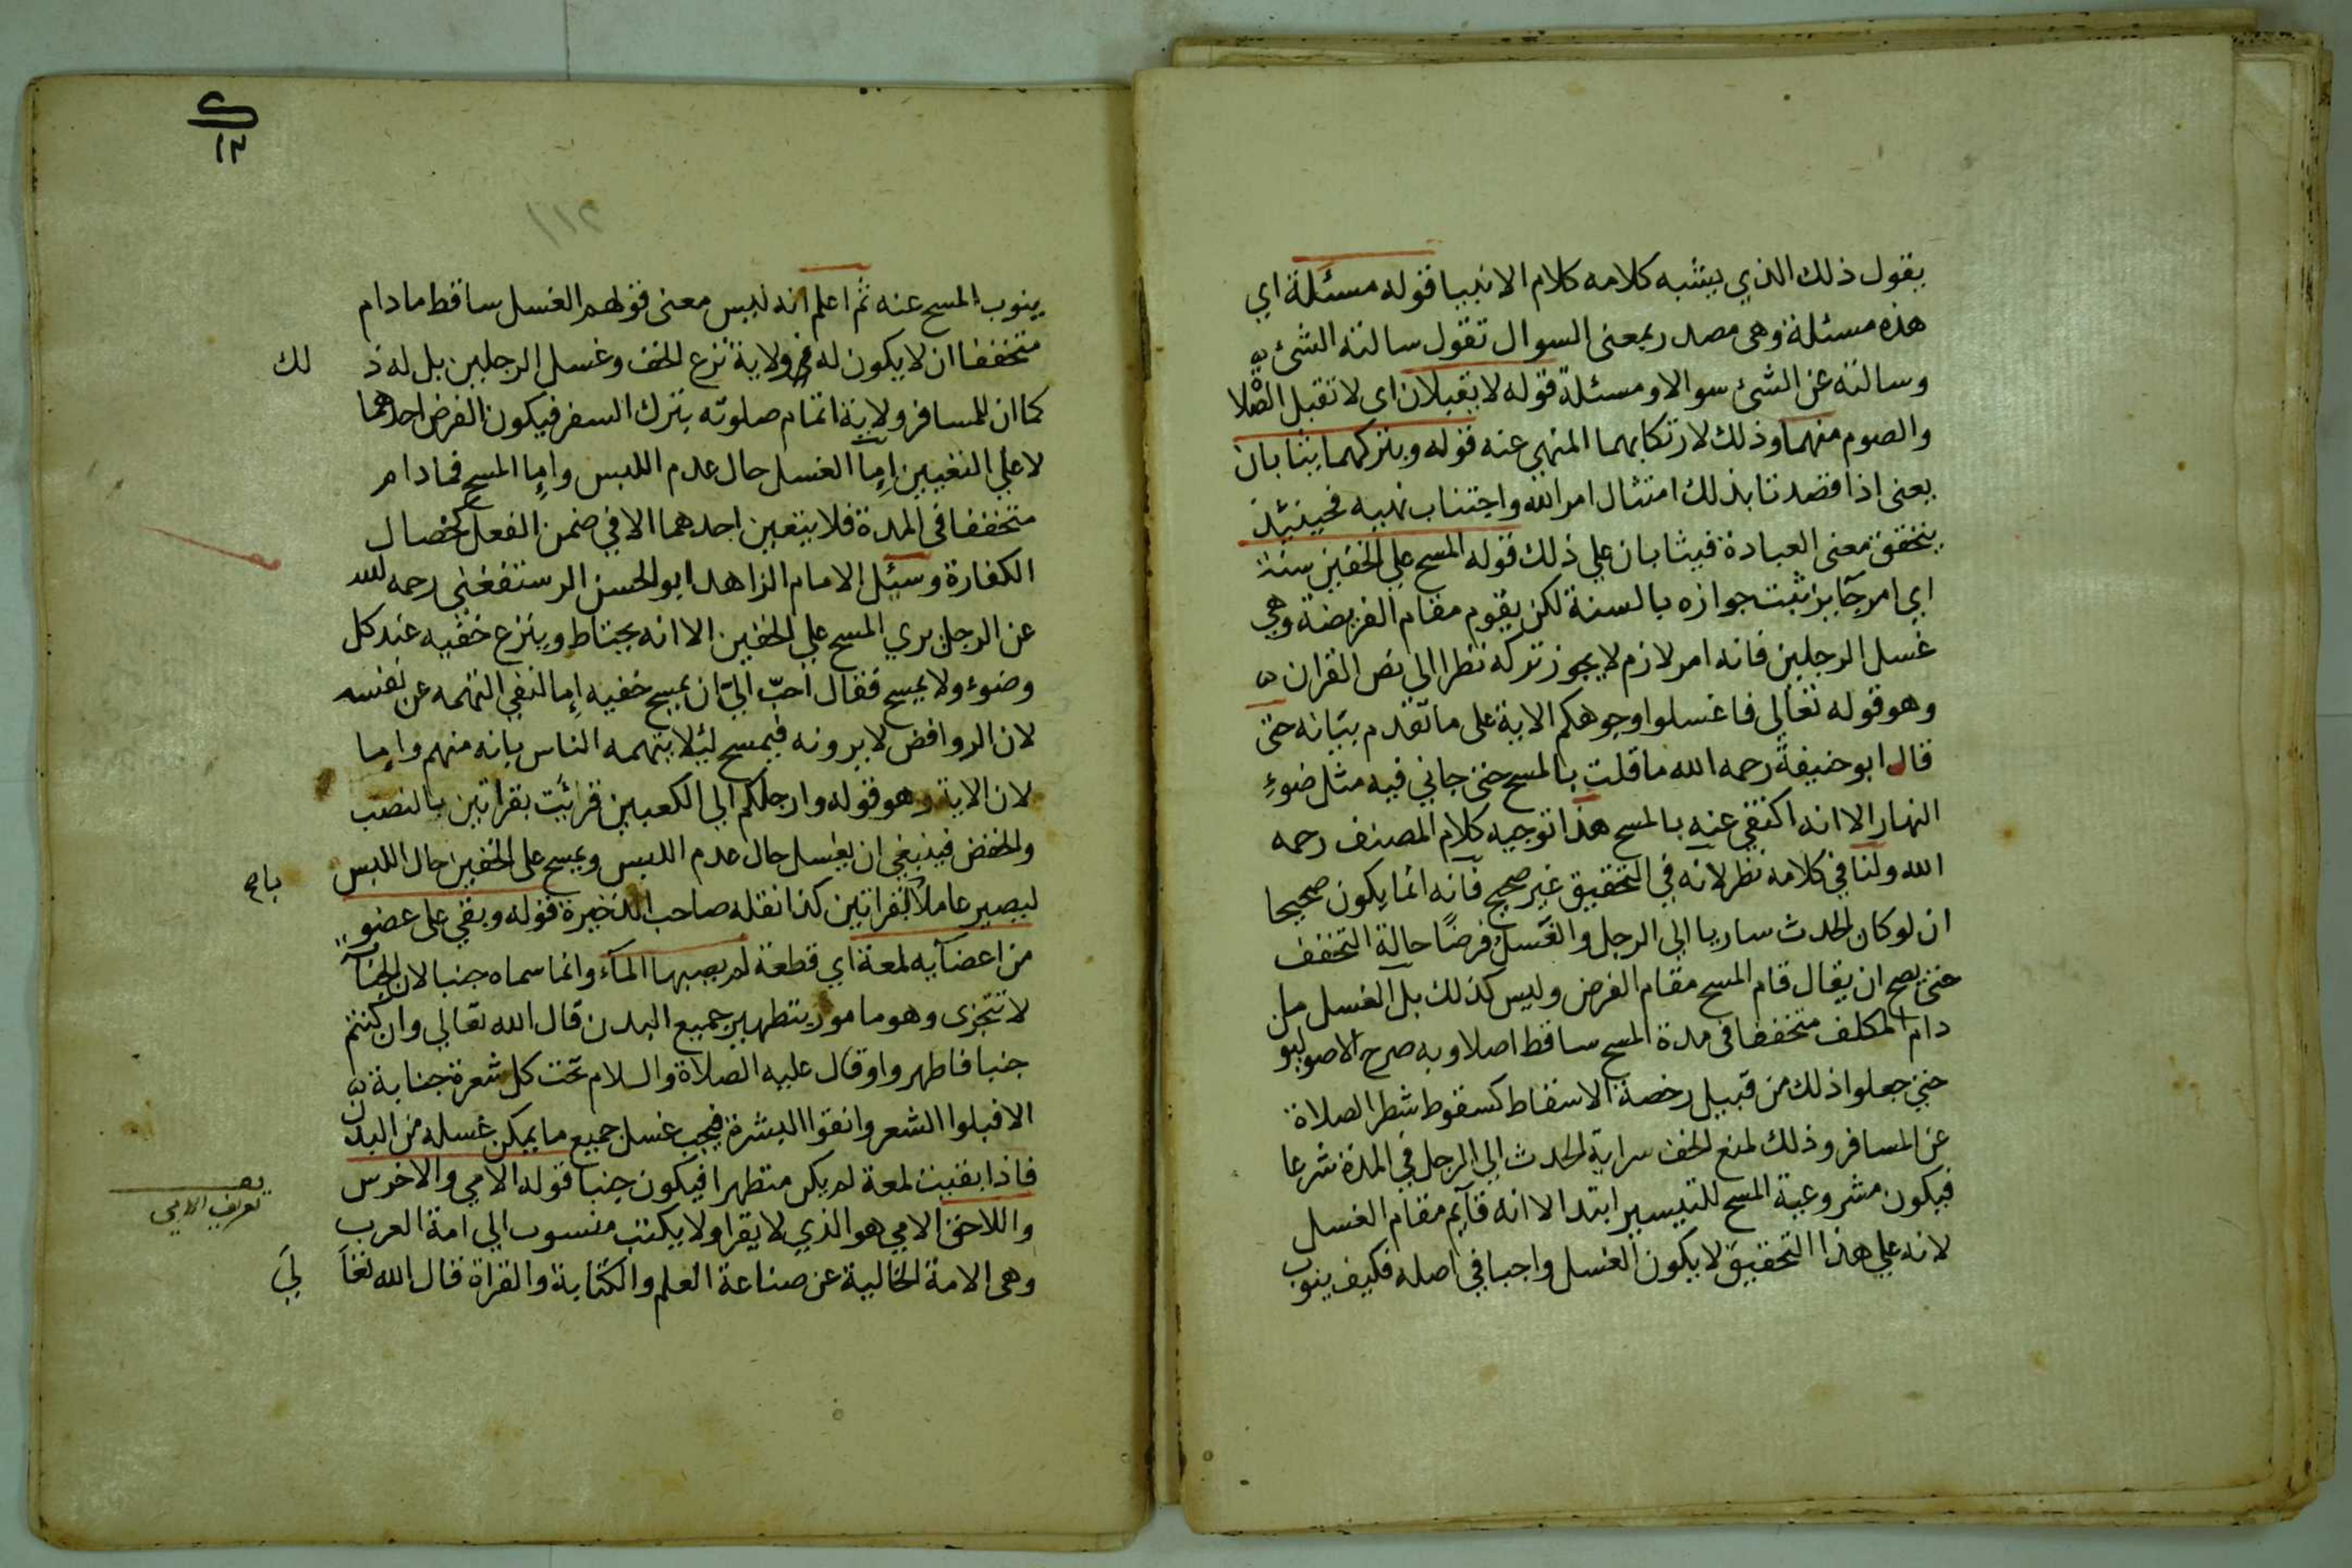 يقول ذلك الذي يشبه كلامه كلام الانبيا قوله مسئلة اي
هذه مسئلة وهى مصدر بمعنى السوال تقول سالته الشئ
وسالته عن الشئ سوالا ومسئلة قوله لا يقبلان اى لا تقبل الصلا
والصوم منهما وذلك لارتكابهما المنهي عنه قوله وبتركهما يثابان
يعنى اذا قصدتا بذلك امتثال امر الله واجتناب نهيه فحينئذ
يتحقق معنى العبادة فيثابان علي ذلك قوله المسح علي الخفين سنة
اي امر جآيز ثبت جوازه بالسنة لكن يقوم مقام الفريضة وهي
غسل الرجلين فانه امر لازم لا يجوز تركه نظرا الي نص القران
وهو قوله تعالي فاغسلوا وجوهكم الاية على ما تقدم بيانه حتى
قال ابو حنيفة رحمه الله ما قلت بالمسح حتى جاني فيه مثل ضوء
النهار الا انه اكتفي عنه بالمسح هذا توجيه كلام المصنف رحمه
الله ولنا في كلامه نظر لانه في التحقيق غير صحيح فانه انما يكون صحيحا
ان لو كان الحدث ساريا الي الرجل والغسل فرضًا حالة التخفف
حتى يصح ان يقال قام المسح مقام الفرض وليس كذلك بل الغسل ما
دام المكلف متخففا فى مدة المسح ساقط اصلا وبه صرح الاصوليو
حتي جعلوا ذلك من قبيل رخصة الاسقاط كسقوط شطر الصلاة
عن المسافر وذلك لمنع الخف سراية الحدث الي الرجل في المدة شرعا
فيكون مشروعية المسح للتيسير ابتدا الا انه قآيم مقام الغسل
لانه علي هذا التحقيق لا يكون الغسل واجبا في اصله فكيف ينوب
١٢
٢١١
ينوب المسح عنه ثم اعلم انه ليس معنى قولهم الغسل ساقط ما دام
متخففا ان لا يكون له ولاية نزع الخف وغسل الرجلين بل له ذ لك
كما ان للمسافر ولاية اتمام صلوته بترك السفر فيكون الفرض احدهما
لا علي التعيين اما الغسل حال عدم اللبس واما المسح فما دام
متخففا فى المدة فلا يتعين احدهما الا في ضمن الفعل كخصال
الكفارة وسئل الامام الزاهد ابو الحسن الرستفغني رحمه الله
عن الرجل يري المسح علي الخفين الا انه يحتاط وينزع خفيه عند كل
وضوء ولا يمسح فقال احبّ اليّ ان يمسح خفيه اما لنفي التهمه عن نفسه
لان الروافض لا يرونه فيمسح لئلا يتهمه الناس بانه منهم واما
لان الاية وهو قوله وارجلكم الي الكعبين قرائت بقراتين بالنصب
والخفض فينبغي ان يغسل حال عدم اللبس ويمسح على الخفين حال اللبس
ليصير عاملا بالقراتين كذا نقله صاحب الذخيرة قوله وبقي على عضو
من اعضآيه لمعة اي قطعة لم يصبها المآء وانما سماه جنبا لان الجنا
لا تتجزى وهو مامور بتطهير جميع البدن قال الله تعالي وان كنتم
جنبا فاطهروا وقال عليه الصلاة والسلام تحت كل شعرة جنابة
الا فبلوا الشعر وانقوا البشرة فيجب غسل جميع ما يمكن غسله من البدن
فاذا بقيت لمعة لم يكن متطهرا فيكون جنبا قوله الامي والاخرس
واللاحق الامي هو الذي لا يقرا ولا يكتب منسوب الي امة العرب
تعريف الامي
وهى الامة الخالية عن صناعة العلم والكتابة والقراة قال الله تعا لي